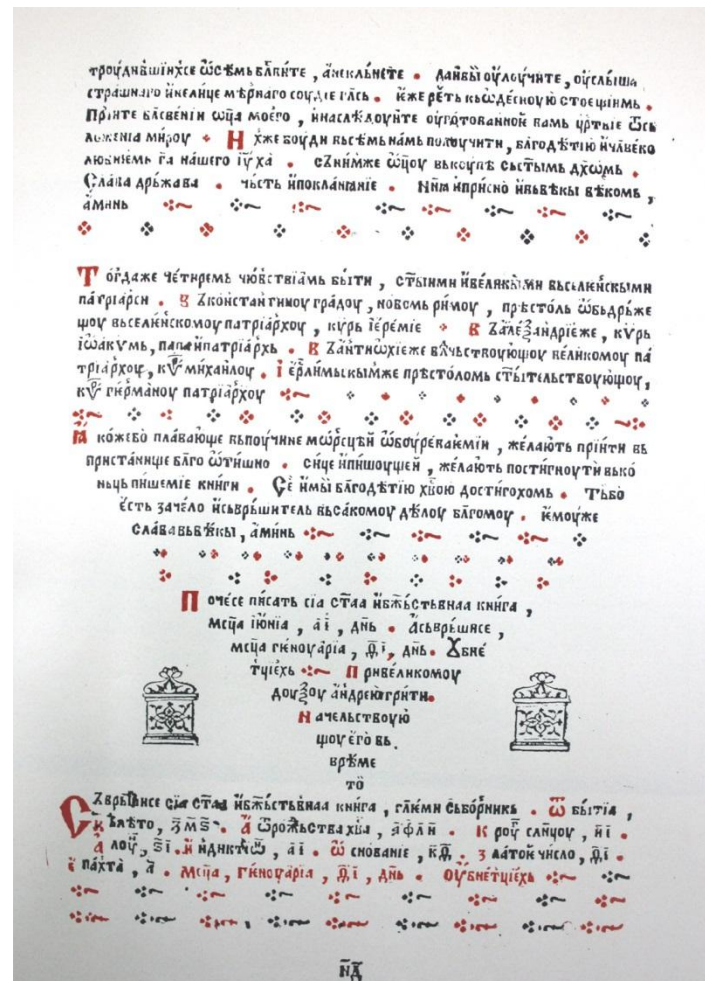 троу́дивши́хсе ѿсе́мь блⷭ҇ви́те , а҆некльне́те . да и҆вы̀ оу҆лоу́чите , оу҆слы́ша
стра́шнаго и҆нели́це мѣ́рнаго соу́дїе гла́сь . и҆́же рѐть кьѡ҆де́сноую стое́щїимь .
Прїи́те бл҃све́нїи ѡ҆ц҃а моего̀ , и҆насле́доуите оу҆гото́ванноѥ ва́мь цр҃тые ѿсь
ложе́нїа ми́роу И҆хже боу́ди вьсе́мь на́мь полоучи́ти , бл҃года́тїю и҆чл҃веко
любїе́мь га̀ на́шего і҆ѵ҃ ха̀ . сꙁни́мже ѡ҆ц҃оу вькоу́пѣ сьст҃ы́мь дх҃ѡмь .
Сла́ва дрь́жава . че́сть и҆поклани́анїе . Нн҃ꙗ и҆при́сно и҆вьвѣ́кы вѣ́комь ,
а҆ми́нь
Тог҃даже че́тиремь чю́вствїамь бы́ти , ст҃ы́ими и҆вели́кы́ми вьселе́нскыми
па́трїа́рси . В ꙁконста́нтиноу гра́доу , но́вомь ри́моу , прѣсто́ль ѡ҆бьдрь́же
щоу вьселе́нскомоу патрїа́рхоу , ку́рь і҆ере́мїе В ꙁа҆леѯа́ндрїеже , ку́рь
і҆ѡа҆ки́мь , па́па и҆патрїа́рхь . В ꙁа҆нтиѡ҆хї́еже вл҃чьствоую́щоу вели́комоу па
трїа́рхоу , кѵⷬ҇ миха́илоу . і҆ ѥрⷭ҇ли́мьскы́мже прѣсто́ломь ст҃и́тельствоую́щоу ,
кѵⷬ҇ ге́рмано́у патрїа́рхоу
Ꙗ҆ко́жебо̀ пла́вающе вьпоу́чине мѡ́рсцѣи ѡ҆боуре́ваѥ́мїи , же́лають прїи́ти вь
приста́нище бл҃го ѿти́шно . си́це и҆пи́шоущеи , же́лають пости́гноути выко
ньць пи́шемїе кни́ги . Се и҆мы̀ бл҃года́тїю хв҃ою дости́гохомь . Тьбо
е҆́сть за́чело и҆сьврь́шитель вьса́комоу дѣ́лоу бл҃гомоу . ѥ҆моу́же
сла́ва вьвѣ́кы , а҆ми́нь
Поче́се пи́сать сїа̀ ст҃аа и҆бж҃ьствьнаа кни́га ,
мсц҃а ію́нїа , а҃ і҃ , дн҃ь . а҆сьврь́шисе ,
мсц҃а ге́ноуа́рїа , д҃ і҃ , дн҃ь . Оу҆бне́
тц́їехь Привели́комоу
доуѯоу а҆ндре́ю гри́ти .
Начельствоую
щоу е҆го̀ вь
врѣ́ме
то̀
Сꙁврь́шисе сїа̀ ст҃аа и҆бж҃ьствьнаа кни́га , гл҃ѥ́ми сьбо́рникь . ѿ бы́тїа ,
кь лѣ́то , ҂з҃м҃ѕ҃ . а҆ ѿро́жьства хв҃а , ҂а҃ф҃л҃и҃ . К роу́ сл҃нцоу , и҃і҃ .
а҆ лоу́ , ѕ҃і҃ . и҆ндиктїѡ́ , а҃і҃ . ѡ҆ снова́нїе , к҃д҃ . злато́и чи́сло , д҃і҃ .
е҆ па́хта , а҃ . мсц҃а , ге́ноуа́рїа , д҃і҃ , дн҃ь . Оу҆бне́тцїехь
н҃д҃